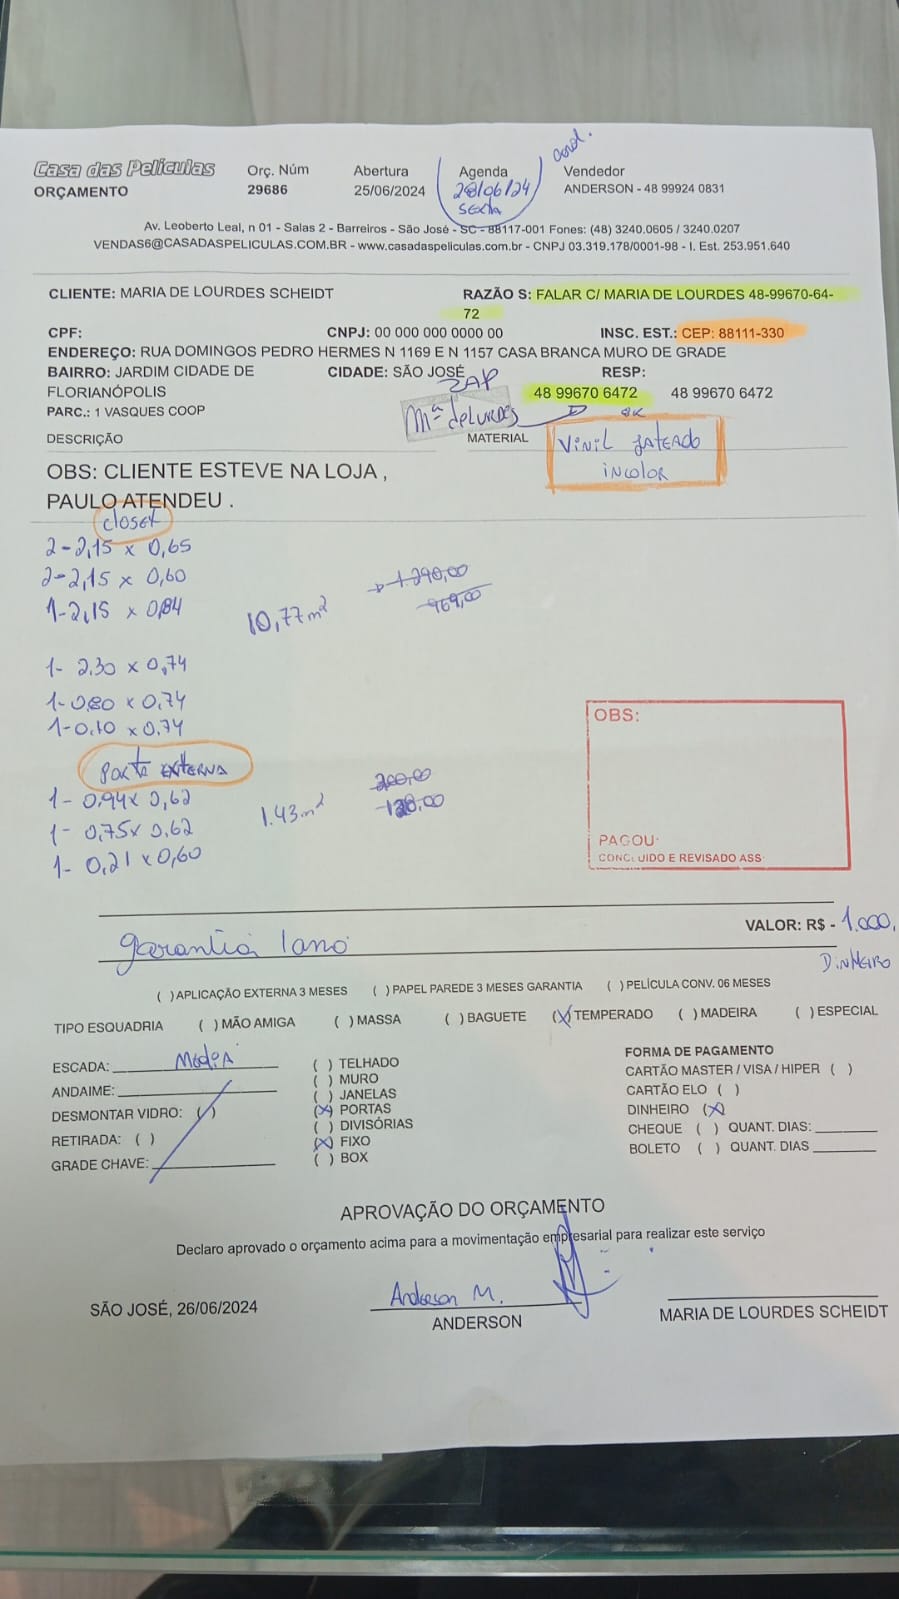 Casa das Películas
ORÇAMENTO
Orç. Núm
29686
Abertura
25/06/2024
Agenda
28/06/24
SEXTA
Vendedor
ANDERSON - 48 99924 0831
Av. Leoberto Leal, n 01 - Salas 2 - Barreiros - São José - SC - 88117-001 Fones: (48) 3240.0605 / 3240.0207
VENDAS6@CASADASPELICULAS.COM.BR - www.casadaspeliculas.com.br - CNPJ 03.319.178/0001-98 - I. Est. 253.951.640
CLIENTE: MARIA DE LOURDES SCHEIDT
RAZÃO S: FALAR C/ MARIA DE LOURDES 48-99670-64-
72
CPF:
CNPJ: 00 000 000 0000 00
INSC. EST.: CEP: 88111-330
ENDEREÇO: RUA DOMINGOS PEDRO HERMES N 1169 E N 1157 CASA BRANCA MURO DE GRADE
BAIRRO: JARDIM CIDADE DE
FLORIANÓPOLIS
CIDADE: SÃO JOSÉ
RESP:
ZAP
48 99670 6472
48 99670 6472
PARC.: 1 VASQUES COOP
Mª de LURDES
OK
DESCRIÇÃO
MATERIAL
VINIL JATEADO
INCOLOR
OBS: CLIENTE ESTEVE NA LOJA ,
PAULO ATENDEU .
closet
2-2,15 x 0,65
2-2,15 x 0,60
1-2,15 x 0,84
10,77m²
1.290,00
969,00
1- 2.30 x 0,74
1-0,80 x 0,74
1-0,10 x 0,74
PORTA EXTERNA
1- 0,94x 0,62
1- 0,75x 0,62
1- 0,21 x 0,60
1.43m²
200,00
128,00
OBS:
PAGOU:
CONCLUIDO E REVISADO ASS:
VALOR: R$ - 1.000,
DINHEIRO
garantia 1 ano
( ) APLICAÇÃO EXTERNA 3 MESES ( ) PAPEL PAREDE 3 MESES GARANTIA ( ) PELÍCULA CONV. 06 MESES
TIPO ESQUADRIA ( ) MÃO AMIGA ( ) MASSA ( ) BAGUETE (X) TEMPERADO ( ) MADEIRA ( ) ESPECIAL
ESCADA: MEDIA
ANDAIME:
DESMONTAR VIDRO: ( )
RETIRADA: ( )
GRADE CHAVE:
( ) TELHADO
( ) MURO
( ) JANELAS
(X) PORTAS
( ) DIVISÓRIAS
(X) FIXO
( ) BOX
FORMA DE PAGAMENTO
CARTÃO MASTER / VISA / HIPER ( )
CARTÃO ELO ( )
DINHEIRO (X)
CHEQUE ( ) QUANT. DIAS:
BOLETO ( ) QUANT. DIAS
APROVAÇÃO DO ORÇAMENTO
Declaro aprovado o orçamento acima para a movimentação empresarial para realizar este serviço
SÃO JOSÉ, 26/06/2024
Anderson M.
ANDERSON
MARIA DE LOURDES SCHEIDT